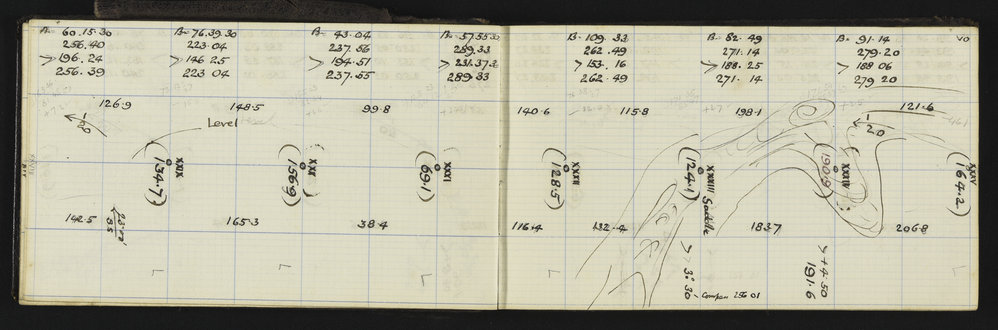 A= 60.15.30
256.40
> 196.24
256.39
B= 76.39.30
223.04
> 146 25
223 04
B= 43.04
237.56
> 194.51
237.55
B= 57.55.30
289.33
> 231.37.2
289.33
B= 109.33
262.49
> 153.16
262.49
B= 82.49
271.14
> 188.25
271.14
B= 91.14
279.20
> 188 06
279 20
126.9
148.5
99.8
140.6
115.8
198.1
121.6
Level
20
XXIX
(134.7)
XXX
(156.9)
XXXI
(69.1)
XXXII
(128.5)
XXXIII Saddle
(124.1)
XXXIV
(190.9)
XXXV
(164.2)
142.5
165.3
38.4
116.4
132.4
183.7
206.8
> 3° 30'
> +4.50
191.6
Compass 256 01